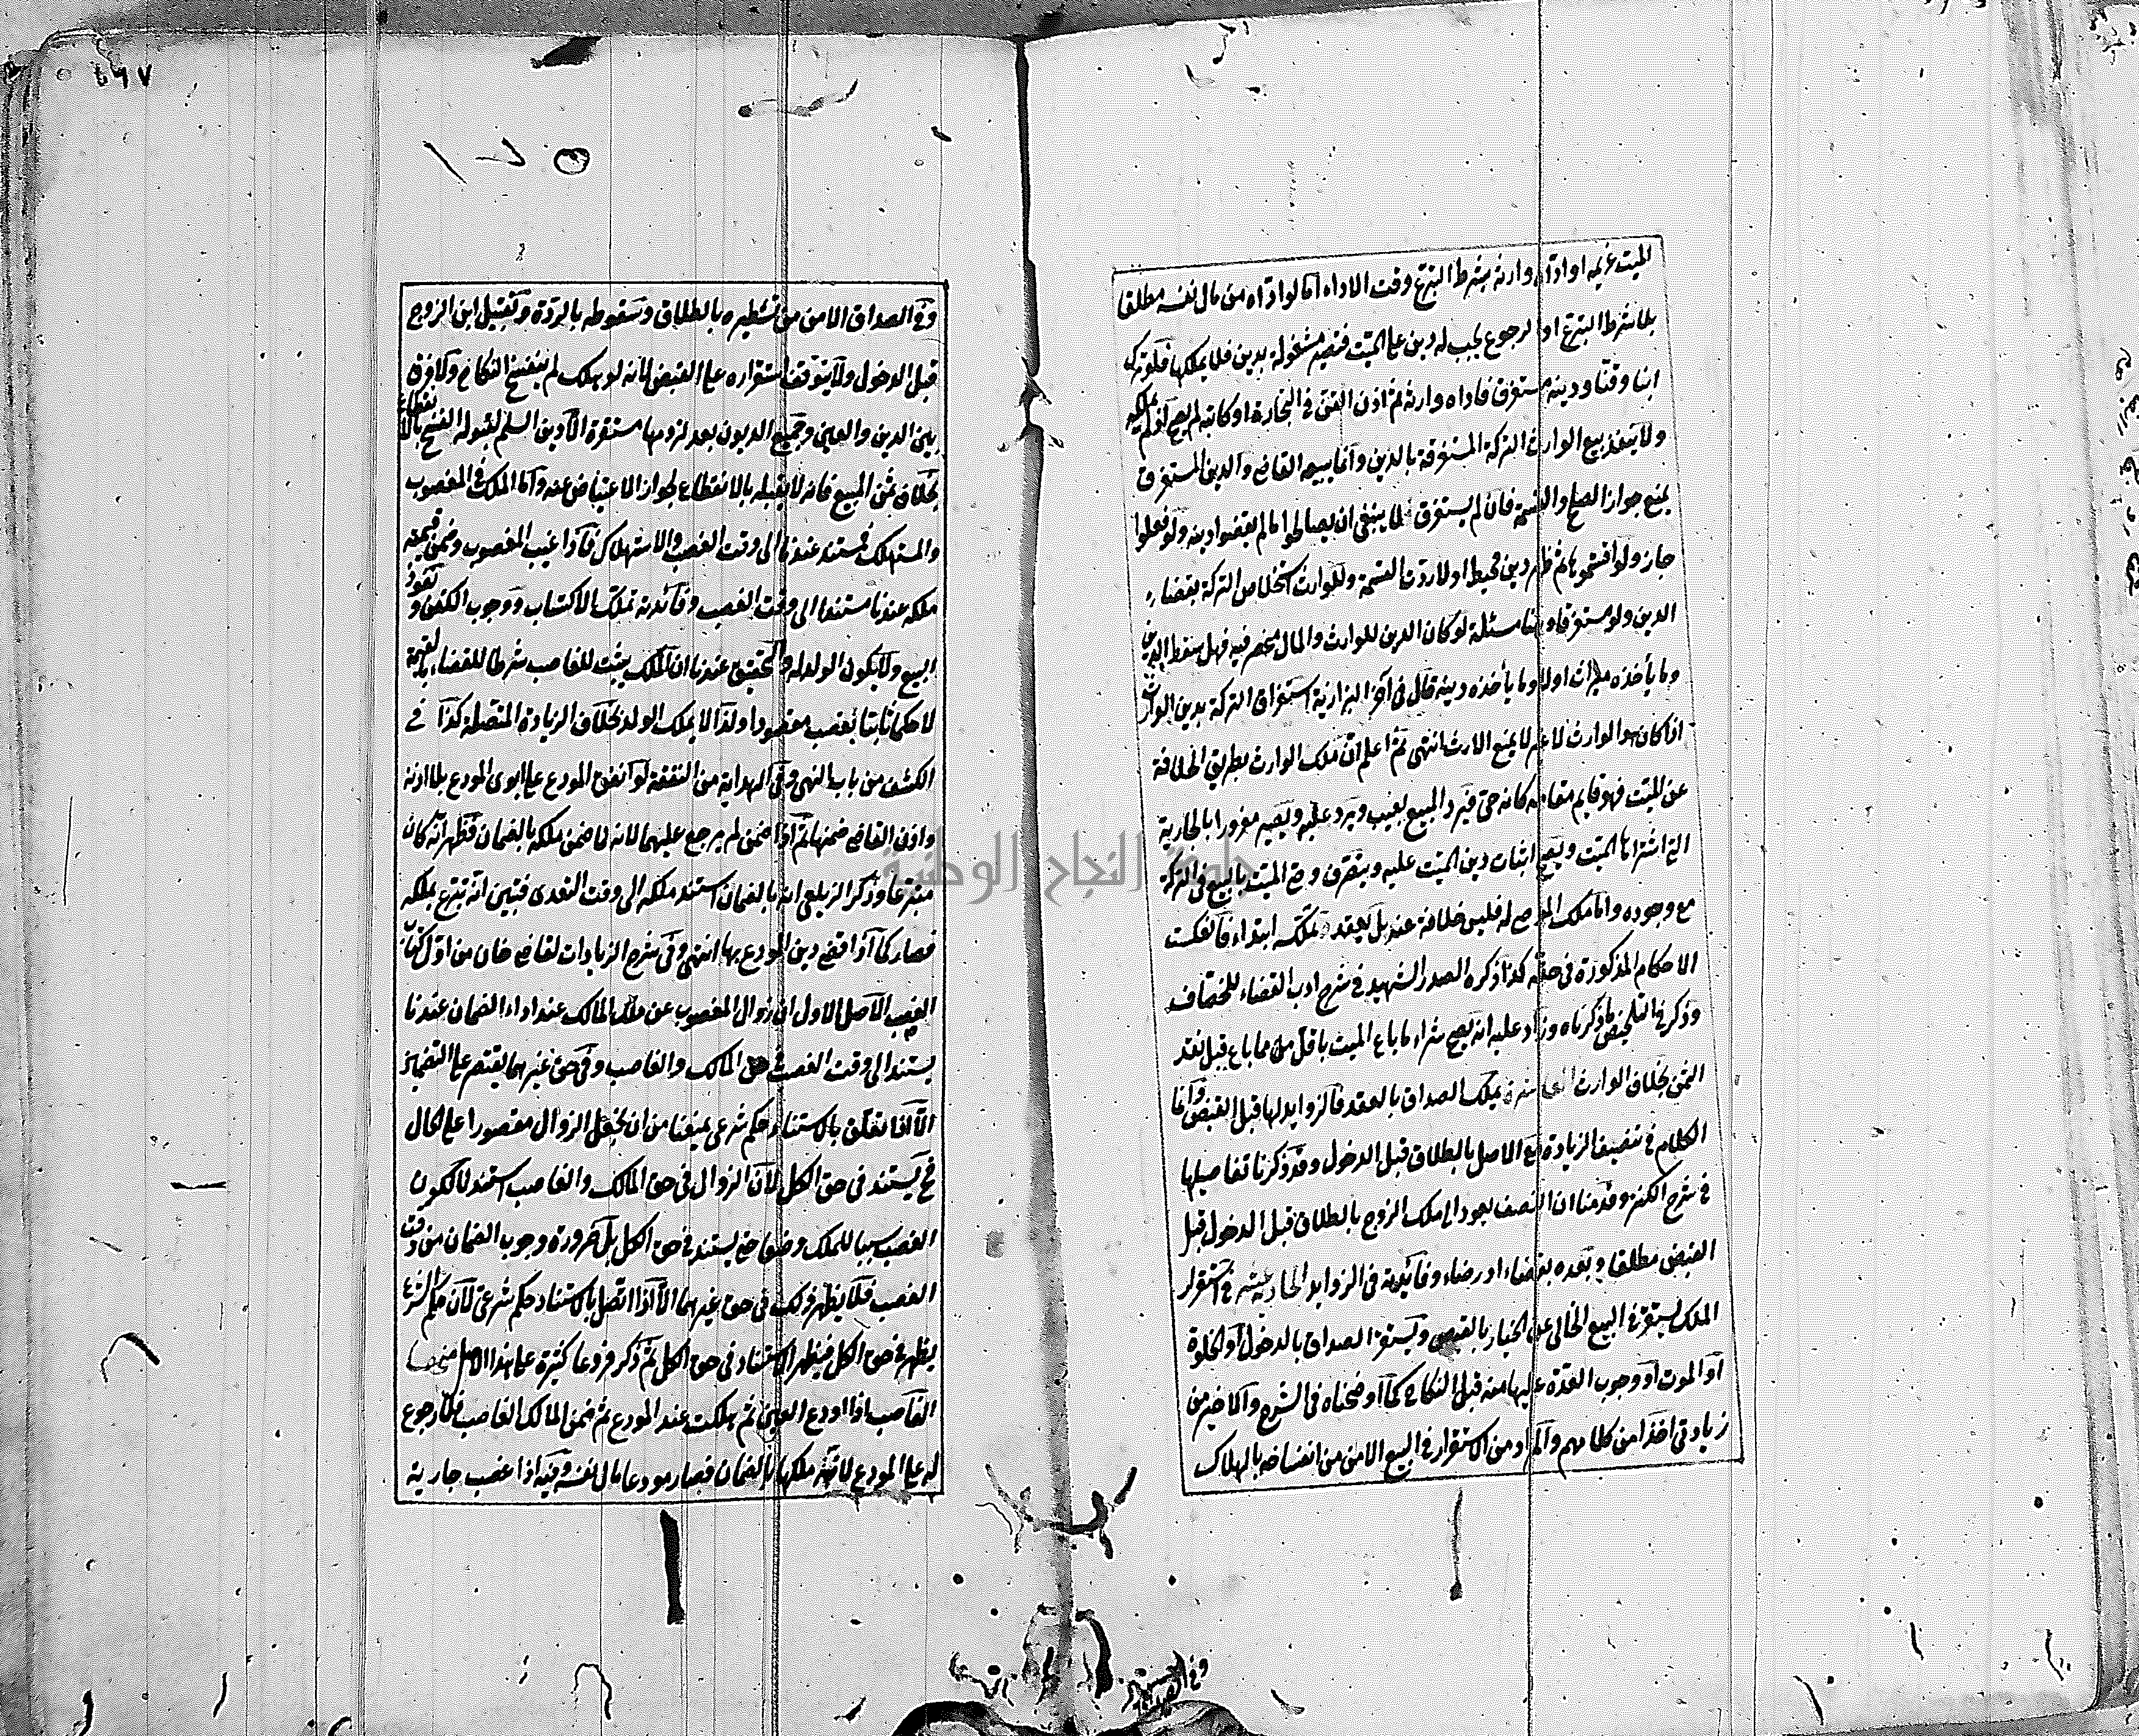 الميت غريمه او اداه وارثه بشرط التبرع وقت الاداء اما لو اداه من مال نفسه مطلقا
بلا شرط التبرع او الرجوع يجب له دين على الميت فتصير مشغولة بدين فلا يملكها فلو ترك
ابنا وقنا ودينه مستغرق فاداه وارثه ثم اذن للقن في التجارة او كاتبه لم يصح اذ لم يملكه
ولا ينفذ بيع الوارث التركة المستغرقة بالدين وانما يبيعه القاضي والدين المستغرق
يمنع جواز الصلح والقسمة فان لم يستغرق لا ينبغي ان يصالحوا ما لم يقضوا دينه ولو فعلوا
جاز ولو اقتسموها ثم ظهر دين محيط اولا ردت القسمة وللوارث استخلاص التركة بقضاء
الدين ولو مستغرقا وهنا مسئلة لو كان الدين للوارث والمال منحصر فيه فهل يسقط الدين
وما يأخذه ميراث اولا وما يأخذه دينه قال في آخر البزازية استغراق التركة بدين الوارث
اذا كان هو الوارث لا غير لا يمنع الارث انتهى ثم اعلم ان ملك الوارث بطريق الخلافة
عن الميت فهو قايم مقامه كانه حي فيرد المبيع بعيب ويرد عليه ويصير مغرورا بالجارية
التي اشتراها الميت ويصح اثبات دين الميت عليه ويتصرف وصي الميت بالبيع في التركة
مع وجوده واما ملك الموصى له فليس خلافة عنه بل بعقد تملكه ابتداء فانعكست
الاحكام المذكورة في حقه كذا ذكره الصدر الشهيد في شرح ادب القضاء للخصاف
وذكر في التلخيص ما ذكرناه وزاد عليه انه يصح شراء ما باع الميت باقل مما باع قبل نقد
الثمن بخلاف الوارث تملك الصداق بالعقد فالزوايد لها قبل القبض وانما
الكلام في تنصيف الزيادة مع الاصل بالطلاق قبل الدخول وقد ذكرنا تفاصيلها
في شرح الكنز وقدمنا ان النصف يعود الى ملك الزوج بالطلاق قبل الدخول قبل
القبض مطلقا وبعده بقضاء او رضاء وفائدته في الزوايد الحادية عشر في استقرار
الملك يستقر في البيع الخالي عن الخيار بالقبض ويستقر الصداق بالدخول او الخلوة
او الموت او وجوب العدة عليها منه قبل النكاح كما اوضحناه في الشرح والاخير من
زيادتي اخذا من كلامهم والمراد من الاستقرار في البيع الامن من انفساخه بالهلاك
وفي الصداق الامن من تشطيره بالطلاق وسقوطه بالردة وتقبيل ابن الزوج
قبل الدخول ولا يتوقف استقراره على القبض لانه لو هلك لم ينفسخ النكاح ولا فرق
بين الدين والعين وجميع الديون بعد لزومها مستقرة الا دين السلم لقبوله الفسخ بالانقطاع
بخلاف ثمن المبيع فانه لا يقبله بالانقطاع لجواز الاعتياض عنه واما الملك في المغصوب
والمستهلك فمستند عندنا الى وقت الغصب والاستهلاك فاذا غيب المغصوب وضمن قيمته
ملكه عندنا مستندا الى وقت الغصب وفائدته تملك الاكتساب ووجوب الكفن ونفوذ
البيع ولا يكون الولد له والتحقيق عندنا ان الملك يثبت للغاصب شرطا للقضاء بالقيمة
لا حكما ثابتا بغصب مقصودا ولذا لا يملك الولد بخلاف الزيادة المتصلة كذا في
الكشف من باب النهي وفي الهداية من النفقة لو انفق المودع على ابوي المودع بلا اذنه
واذن القاضي ضمنها ثم اذا ضمن لم يرجع عليهما لانه لما ضمن ملكه بالضمان فظهر انه كان
متبرعا وذكر الزيلعي انه بالضمان استند ملكه الى وقت التعدي فتبين انه تبرع بملكه
فصار كما اذا قضى دين المودع بها انتهى وفي شرح الزيادات لقاضي خان من اول كتاب
الغصب الاصل الاول ان زوال المغصوب عن ملك المالك عند اداء الضمان عندنا
يستند الى وقت الغصب في حق المالك والغاصب وفي حق غيرهما يقتصر على التضمين
الا اذا تعلق بالاستناد حكم شرعي يمنعنا من ان نجعل الزوال مقصورا على الحال
فح يستند في حق الكل لان الزوال في حق المالك والغاصب استند لا لكون
الغصب سببا للملك وضعا حتى يستند في حق الكل بل ضرورة وجوب الضمان من وقت
الغصب فلا يظهر ذلك في حق غيرهما الا اذا اتصل بالاستناد حكم شرعي لان حكم الشرع
يظهر في حق الكل فيظهر الاستناد في حق الكل ثم ذكر فروعا كثيرة على هذا الاصل منها
الغاصب اذا اودع العين ثم هلكت عند المودع ثم ضمن المالك الغاصب فلا رجوع
له على المودع لانه ملكها بالضمان فصار مودعا مال نفسه وفيه اذا غصب جارية
جامعة النجاح الوطنية